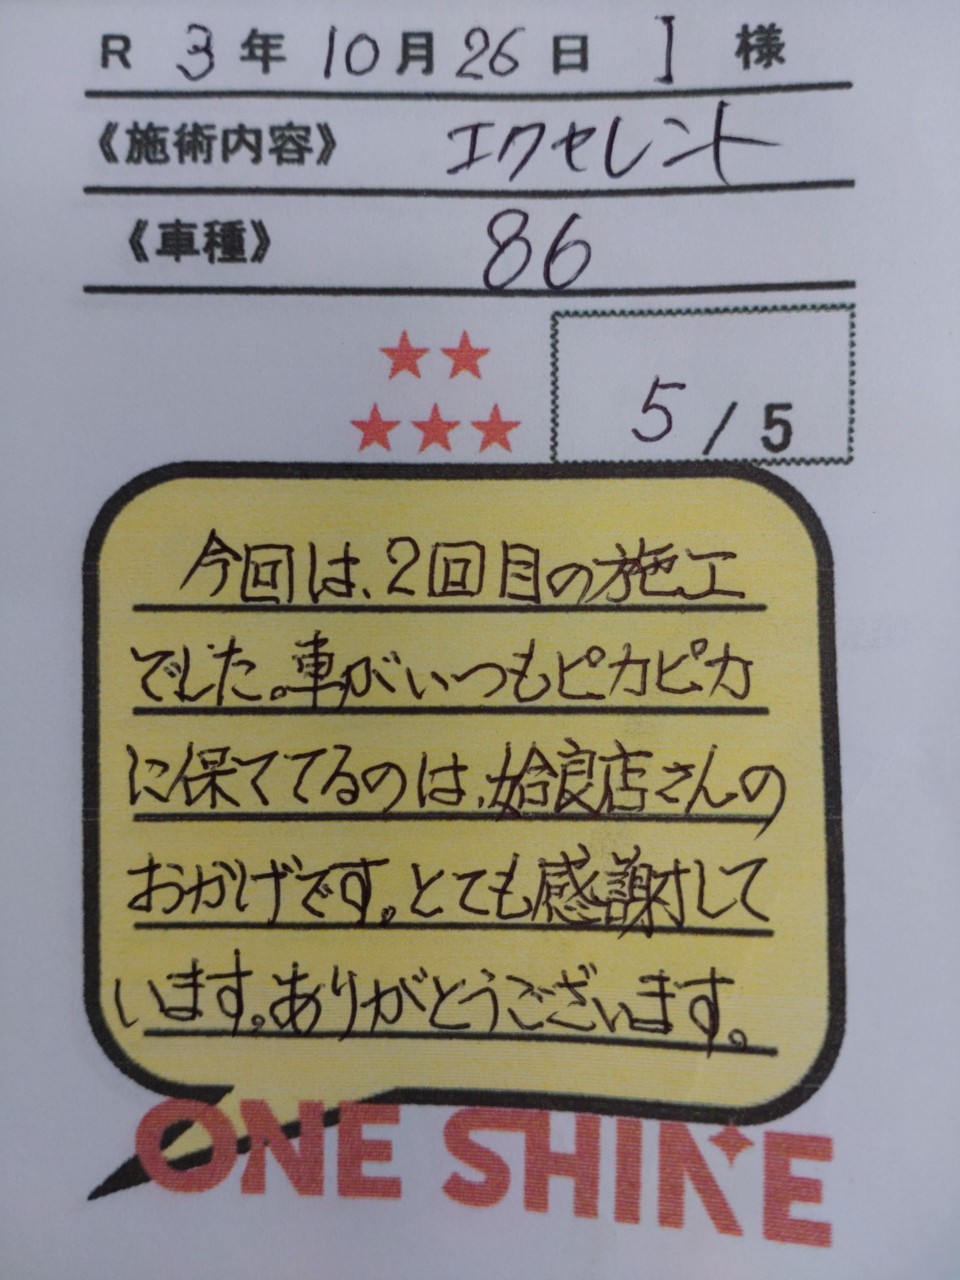 R 3年 10月26日 I 様
《施術内容》 エクセレント
《車種》 86
5/5
今回は、2回目の施工
でした。車がいつもピカピカ
に保ててるのは、姶良店さんの
おかげです。とても感謝して
います。ありがとうございます。
ONE SHINE